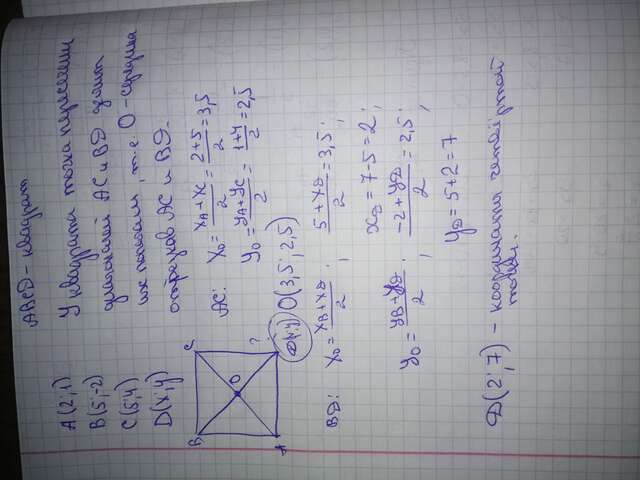 ABCD - квадрат
A(2;1)
B(5;-2)
C(5;4)
D(x;y)
У квадрата точка пересечения
диагоналей AC и BD делит
их пополам, т.е. O - середина
отрезков AC и BD.
B
C
O
A
?
D(x;y)
AC: X₀ = (x_A + x_C)/2 = (2+5)/2 = 3,5
y₀ = (y_A + y_C)/2 = (1+4)/2 = 2,5
O(3,5; 2,5)
BD: X₀ = (x_B + x_D)/2; (5 + x_D)/2 = 3,5;
x_D = 7-5 = 2;
y₀ = (y_B + y_D)/2; (-2 + y_D)/2 = 2,5;
y_D = 5+2 = 7
D(2;7) - координаты четвёртой
точки.